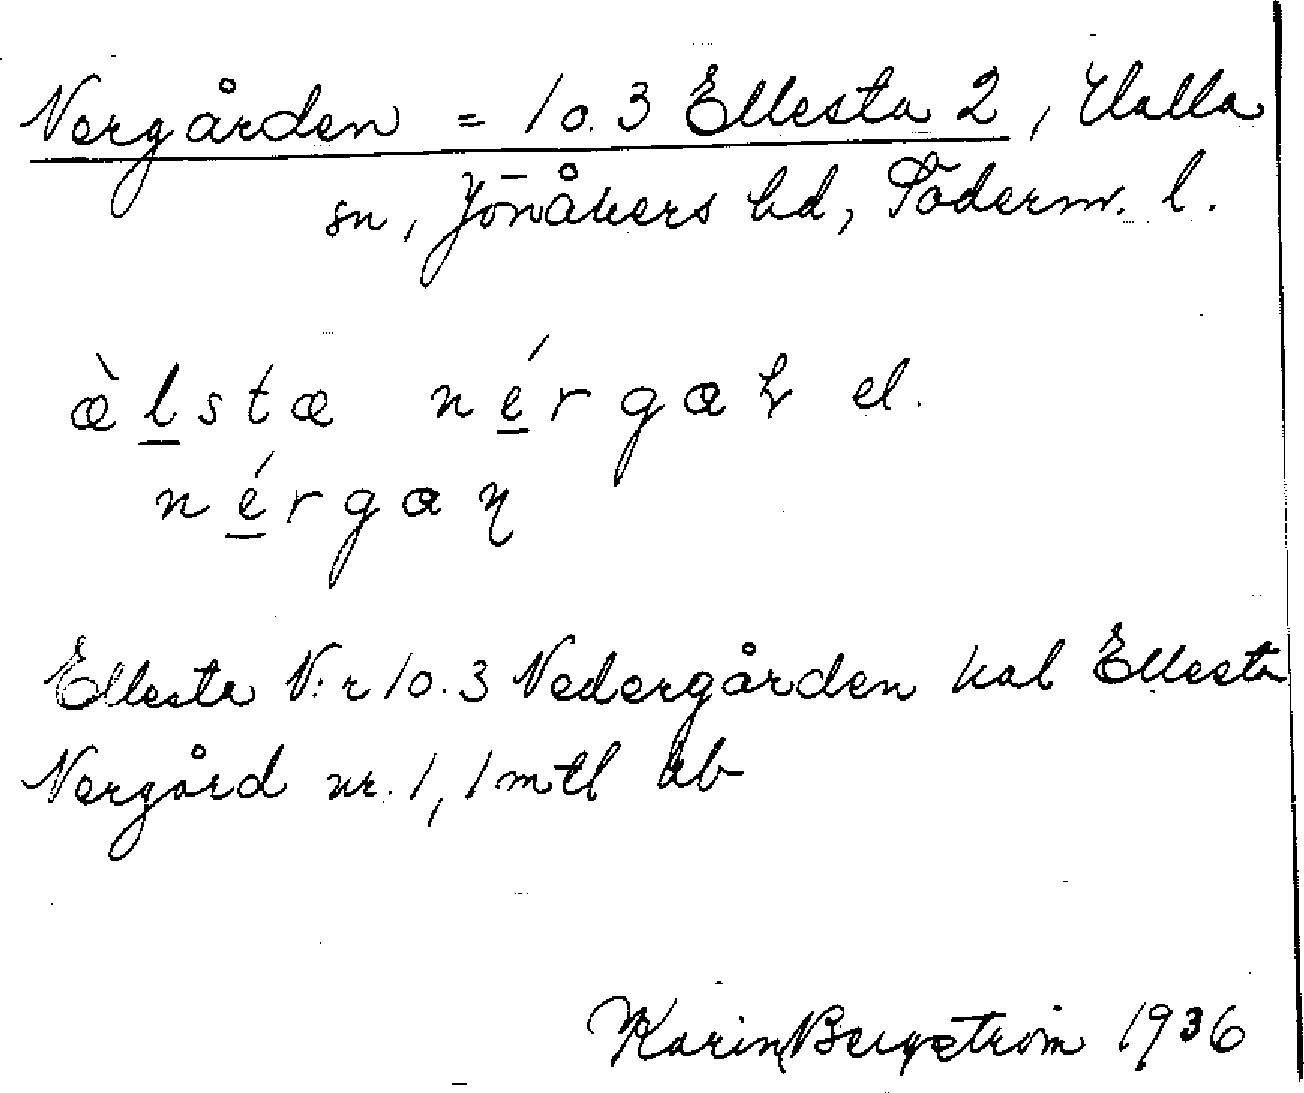 Nergården = 1 o. 3 Ellesta 2, Halla
sn, Jönåkers hd, Söderm. l.
æ̀lstæ nérgaɖ el.
nérgaɳ
Ellesta N:r 1 o. 3 Nedergården kal Ellesta
Nergård nr. 1, 1 mtl kb
Karin Bergström 1936